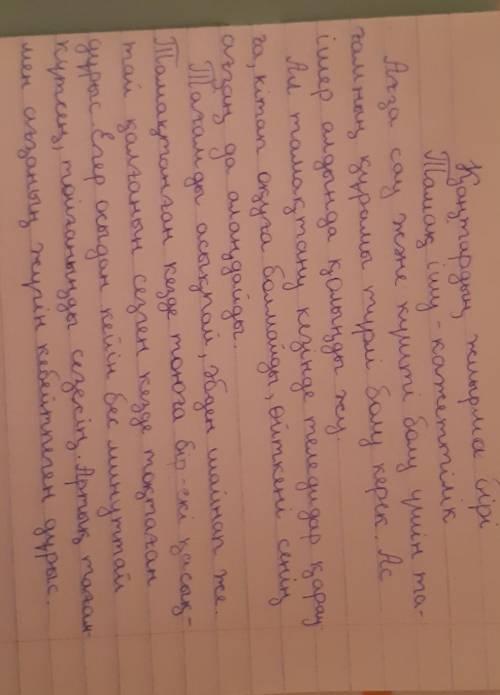 Қаңтардың жиырма бірі
Тамақ ішу - қажеттілік
Ағза сау және күшті болу үшін та-
ғамның құрамы түрлі болу керек. Ас
ішер алдында қолыңды жу.
Ал тамақтану кезінде теледидар қарау
ға, кітап оқуға болмайды, өйткені сенің
ағзаң да алаңдайды.
Тағамды асықпай, әбден шайнап же.
Тамақтанған кезде тоюға бір-екі қасық-
тай қалғанын сезген кезде тоқтаған
дұрыс Егер осыдан кейін бес минуттай
күтсең, тойғаныңды сезесің. Артық тағам-
мен ағзаның жүгін көбейтпеген дұрыс.